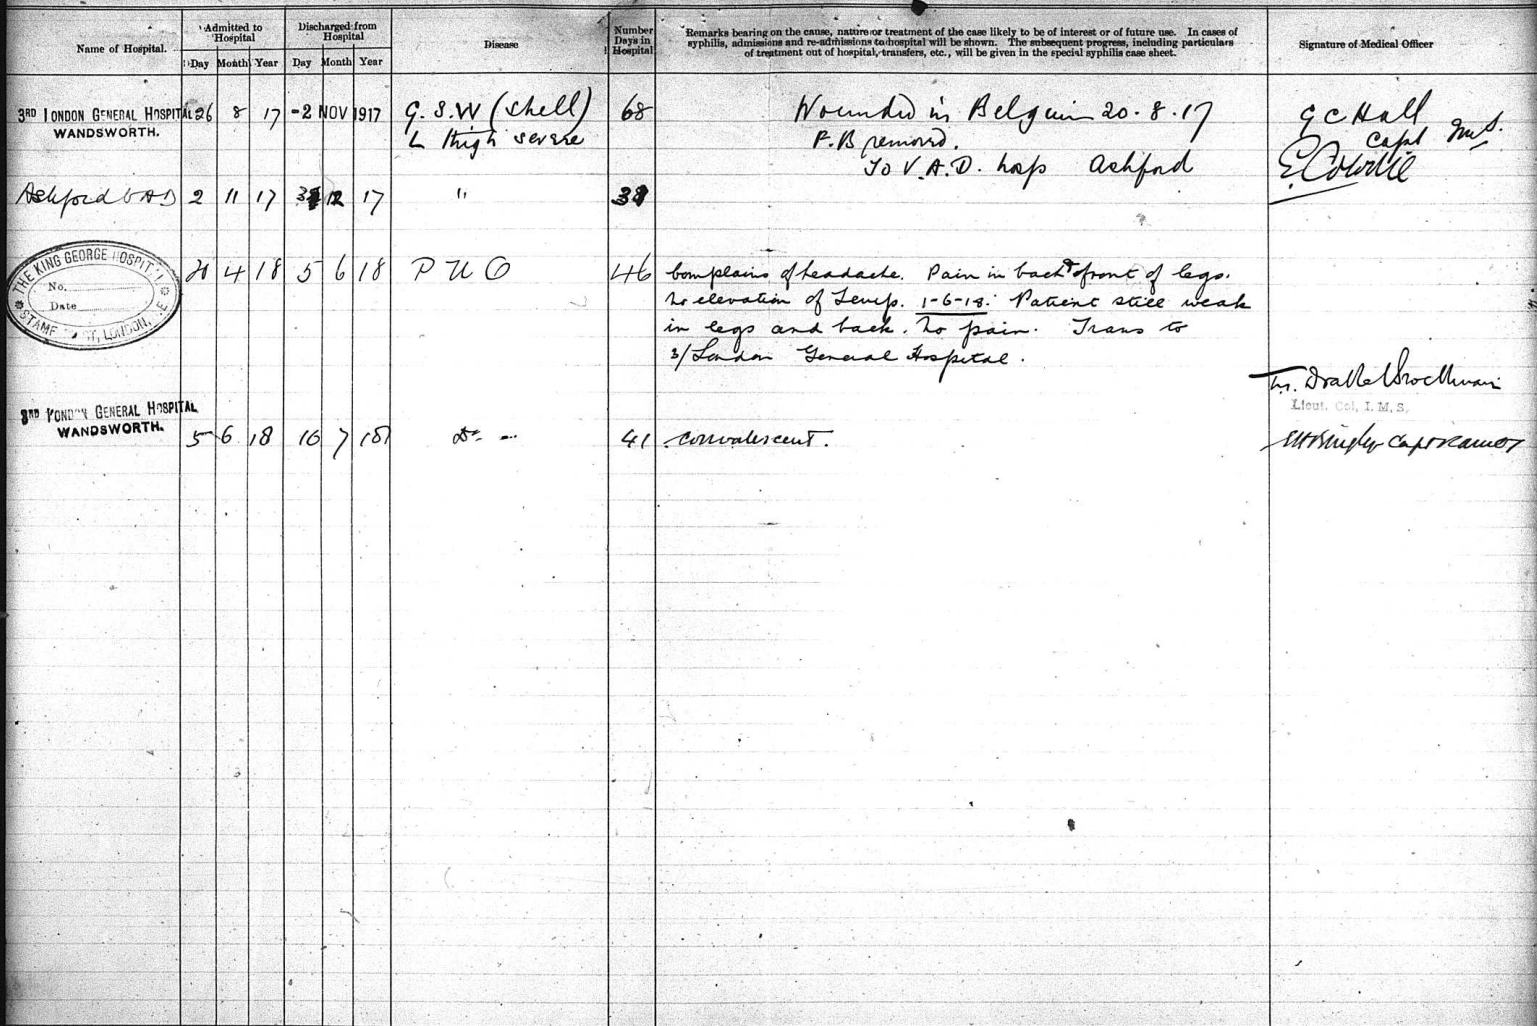 Name of Hospital.
Admitted to Hospital
Discharged from Hospital
Disease
Number Days in Hospital
Remarks bearing on the cause, nature or treatment of the case likely to be of interest or of future use. In cases of
syphilis, admissions and re-admissions to hospital will be shown. The subsequent progress, including particulars
of treatment out of hospital, transfers, etc., will be given in the special syphilis case sheet.
Signature of Medical Officer
Day Month Year Day Month Year
3RD LONDON GENERAL HOSPITAL 26 8 17 -2 NOV 1917 G.S.W (Shell) 68 Wounded in Belgium 20.8.17 G C Hall
WANDSWORTH. L thigh severe F.B removed. Capt
To V.A.D. hosp Ashford
Ashford VAD 2 11 17 12 17 "
THE KING GEORGE HOSPITAL
No.
Date
STAMFORD ST, LONDON, S.E.
20 4 18 5 6 18 P U O 46 Complains of headache. Pain in back & front of legs.
No elevation of Temp. 1-6-18. Patient still weak
in legs and back. No pain. Trans to
3/London General Hospital.
Lieut. Col, I.M.S.
3RD LONDON GENERAL HOSPITAL
WANDSWORTH. 5 6 18 16 7 18 Do 41 convalescent. Capt RAMC